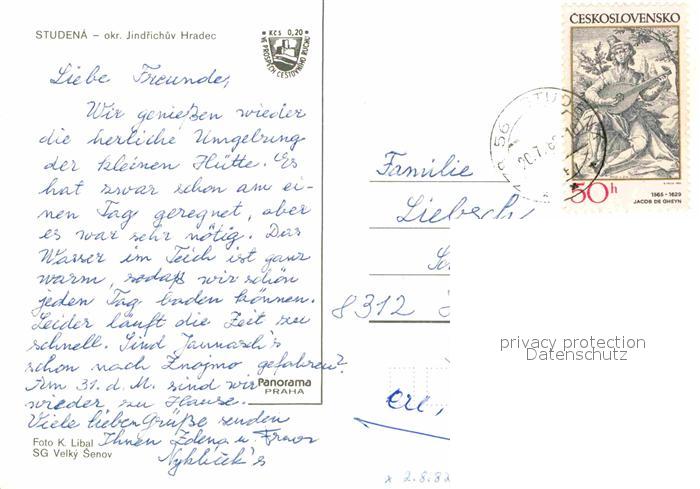 STUDENÁ – okr. Jindřichův Hradec
Kčs 0,20
VE PROSPĚCH CESTOVNÍHO RUCHU
Liebe Freunde,
Wir genießen wieder
die herrliche Umgebung
der kleinen Hütte. Es
hat zwar schon am ei-
nen Tag geregnet, aber
es war sehr nötig. Das
Wasser im Teich ist ganz
warm, sodaß wir schön
jeden Tag baden können.
Leider läuft die Zeit zu
schnell. Sind Jannasch's
schon nach Znojmo gefahren?
Am 31. d. M. sind wir
wieder zu Hause.
Viele liebe Grüße senden
Ihnen Zdena u.
Panorama
PRAHA
Foto K. Libal
SG Velký Šenov
ČESKOSLOVENSKO
50h
1565 - 1629
JACOB DE GHEYN
STUDENÁ
Familie
8312
privacy protection
Datenschutz
x 2.8.82